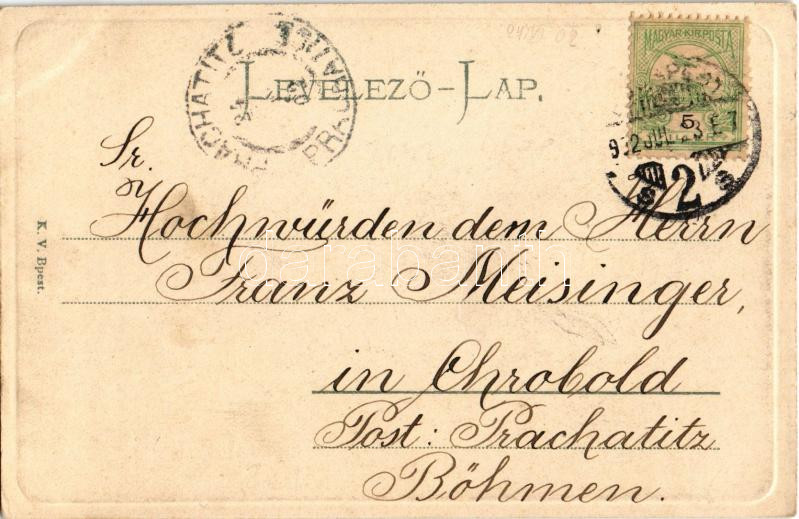 MAGYAR KIR. POSTA
5
LEVELEZŐ-LAP.
PRACHATITZ
902 JUL 23
2
Sr.
Hochwürden dem Herrn
Franz Meisinger,
in Chrobold
Post: Prachatitz
Böhmen.
K. V. Bpest.
darabanth